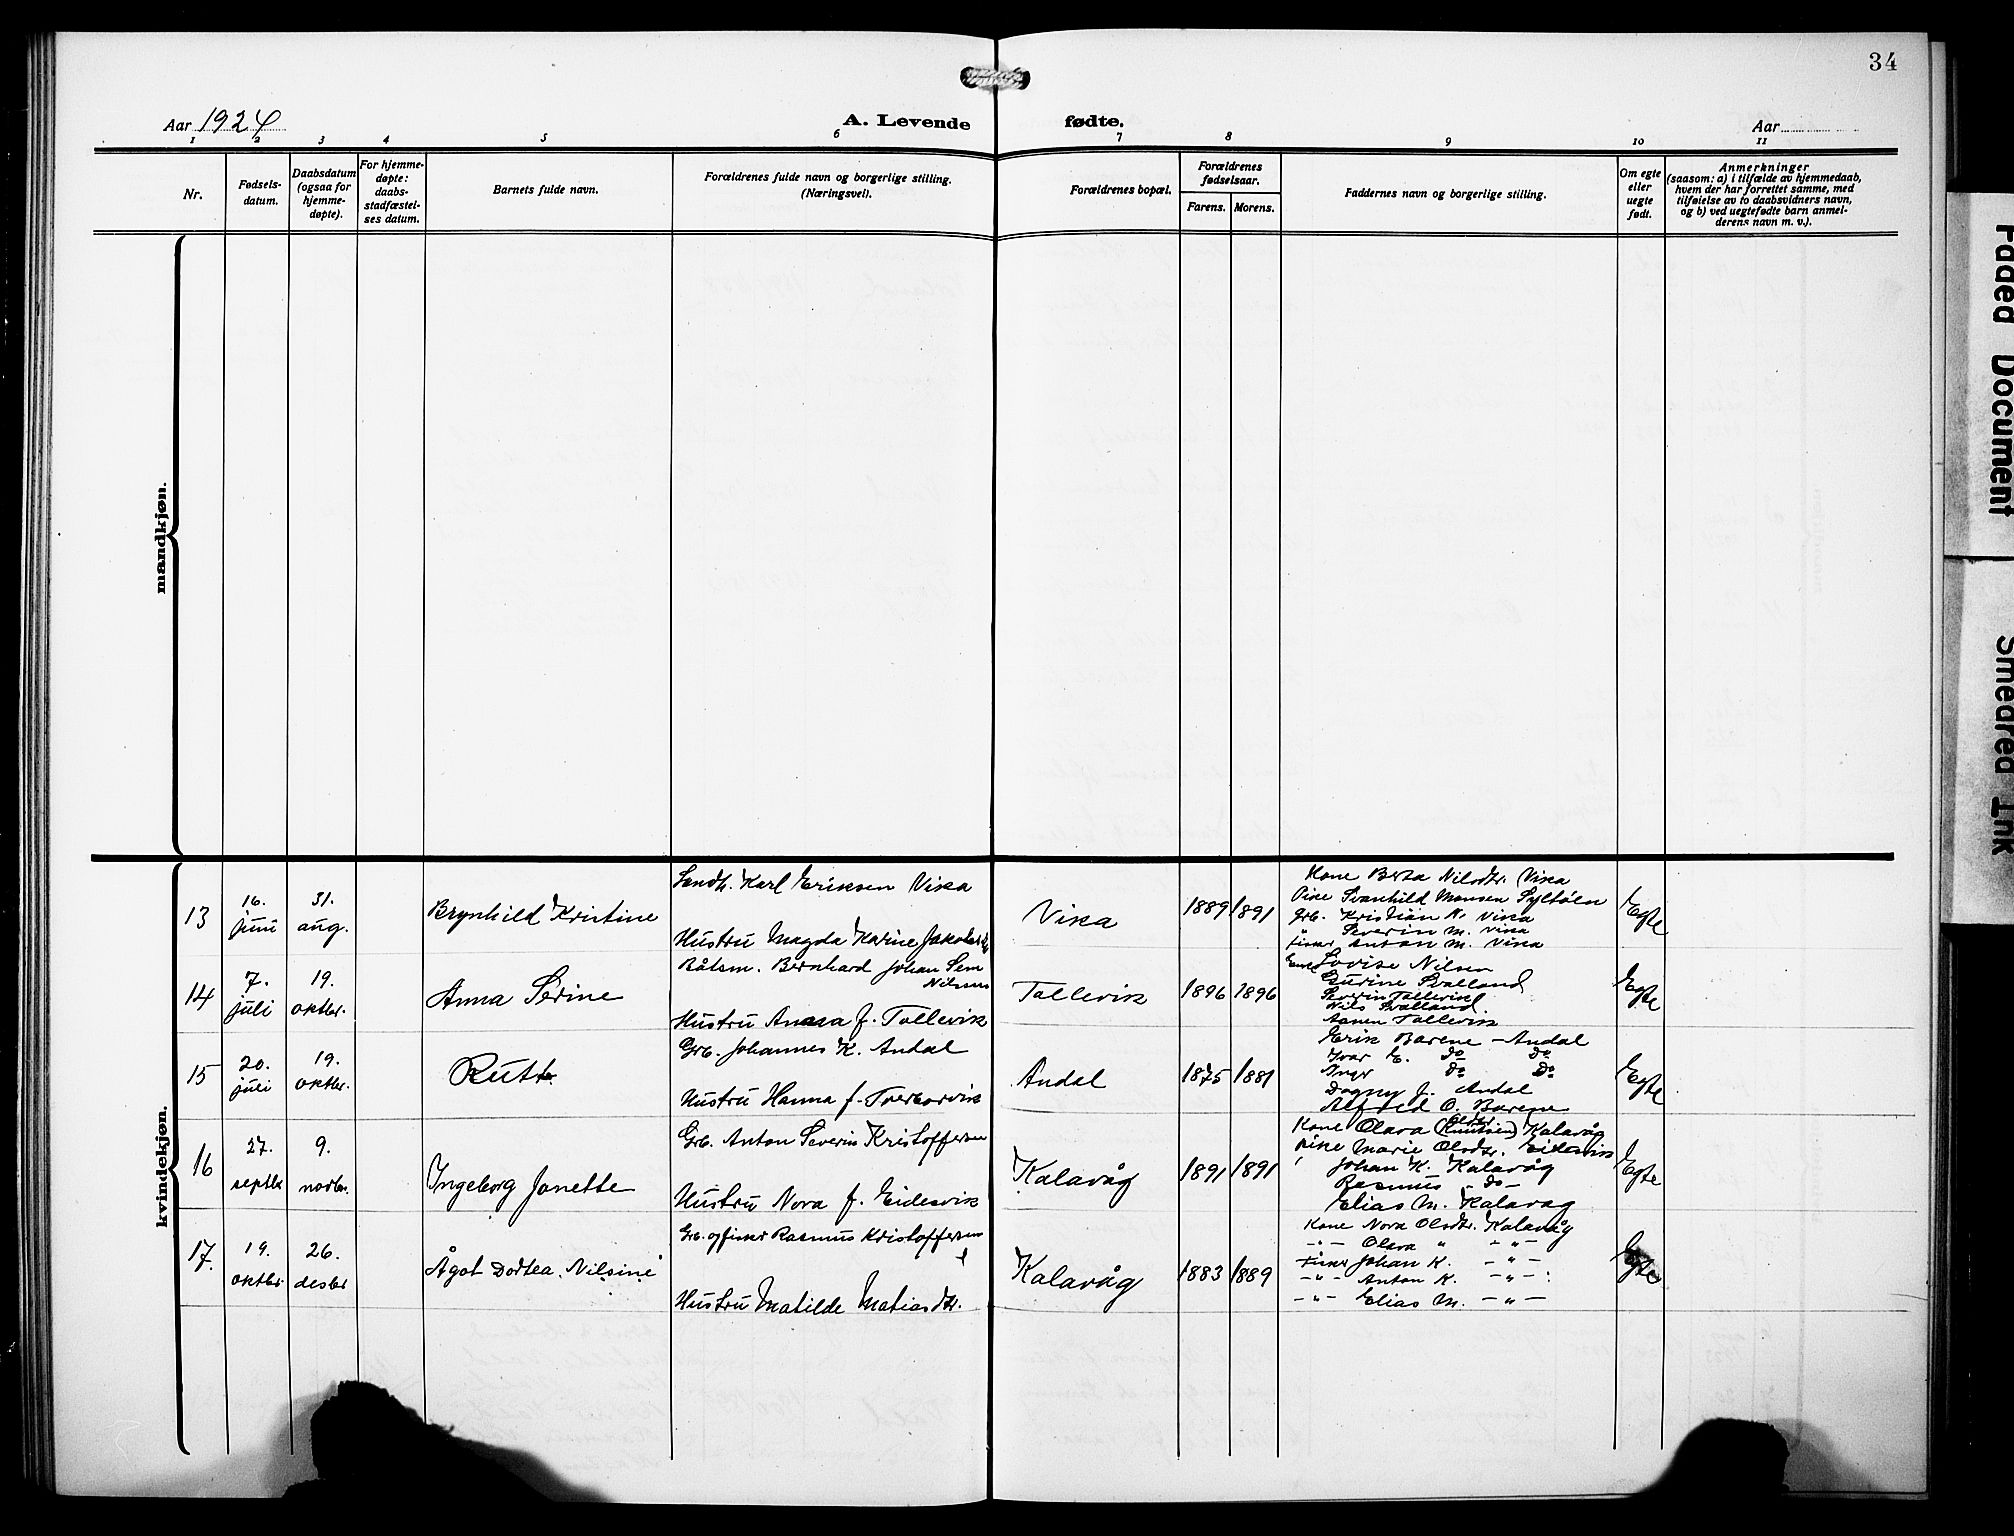 34
Aar 1924
A. Levende fødte.
Aar
1 2 3 4 5 6 7 8 9 10 11
Nr.
Fødsels-
datum.
Daabsdatum
(ogsaa for
hjemme-
døpte).
For hjemme-
døpte:
daabs-
stadfæstel-
ses datum.
Barnets fulde navn.
Forældrenes fulde navn og borgerlige stilling.
(Næringsvei).
Forældrenes bopæl.
Forældrenes
fødselsaar.
Farens. Morens.
Faddernes navn og borgerlige stilling.
Om egte
eller
uegte
født.
Anmerkninger
(saasom: a) i tilfælde av hjemmedaab,
hvem der har forrettet samme, med
tilføielse av to daabsvidners navn,
og b) ved uegtefødte barn anmel-
derens navn m. v.).
mandkjøn.
kvindekjøn.
13
16.
juni
31.
aug.
Brynhild Kristine
Karl Eriksen Vika
Hustru Magda Karine
Vika
1889 1891
Kone Berta Nilsdtr. Vika
Pike Svanhild Monsen
Grb. Kristian K. Vika
" Severin M. Vika
Fisker Anton M. Vika
Egte
14
7.
juli
19.
oktbr.
Anna Serine
Båtsm. Bernhard Johan Sem
Nilssen
Hustru Anna f. Tollevik
Tollevik
1896 1896
Lovise Nilsen
Gurine Svalland
Severin Tollevik
Nils Svalland
Tollevik
Egte
15
20.
juli
19.
oktbr.
Rutt
Grb. Johannes K. Andal
Hustru Hanna f. Tverborvik
Andal
1875 1881
Erik Barene - Andal
Ivar E. do do
Inger do do
Dagny J. Andal
O. Barene
Egte
16
27.
septbr
9.
novbr.
Ingeborg Janette
Grb. Anton Severin Kristoffersen
Hustru Nora f. Eidesvik
Kalavåg
1891 1891
Kone Olara (Knutsen) Kalavåg
Pike Marie Olsdtr. Eidesvik
Johan K. Kalavåg
Rasmus - do -
Elias M. Kalavåg
Egte
17
19.
oktbr
26.
desbr
Ågot Dortea Nilsine
Grb. og fisker Rasmus Kristoffersen
Hustru Matilde Matiasdtr.
Kalavåg
1883 1889
Kone Nora Olsdtr. Kalavåg
-"- Olara " -"-
Fisker Johan K. -"-
-"- Anton K. -"-
-"- Elias M. -"-
Egte
Faded Document
Smeared Ink